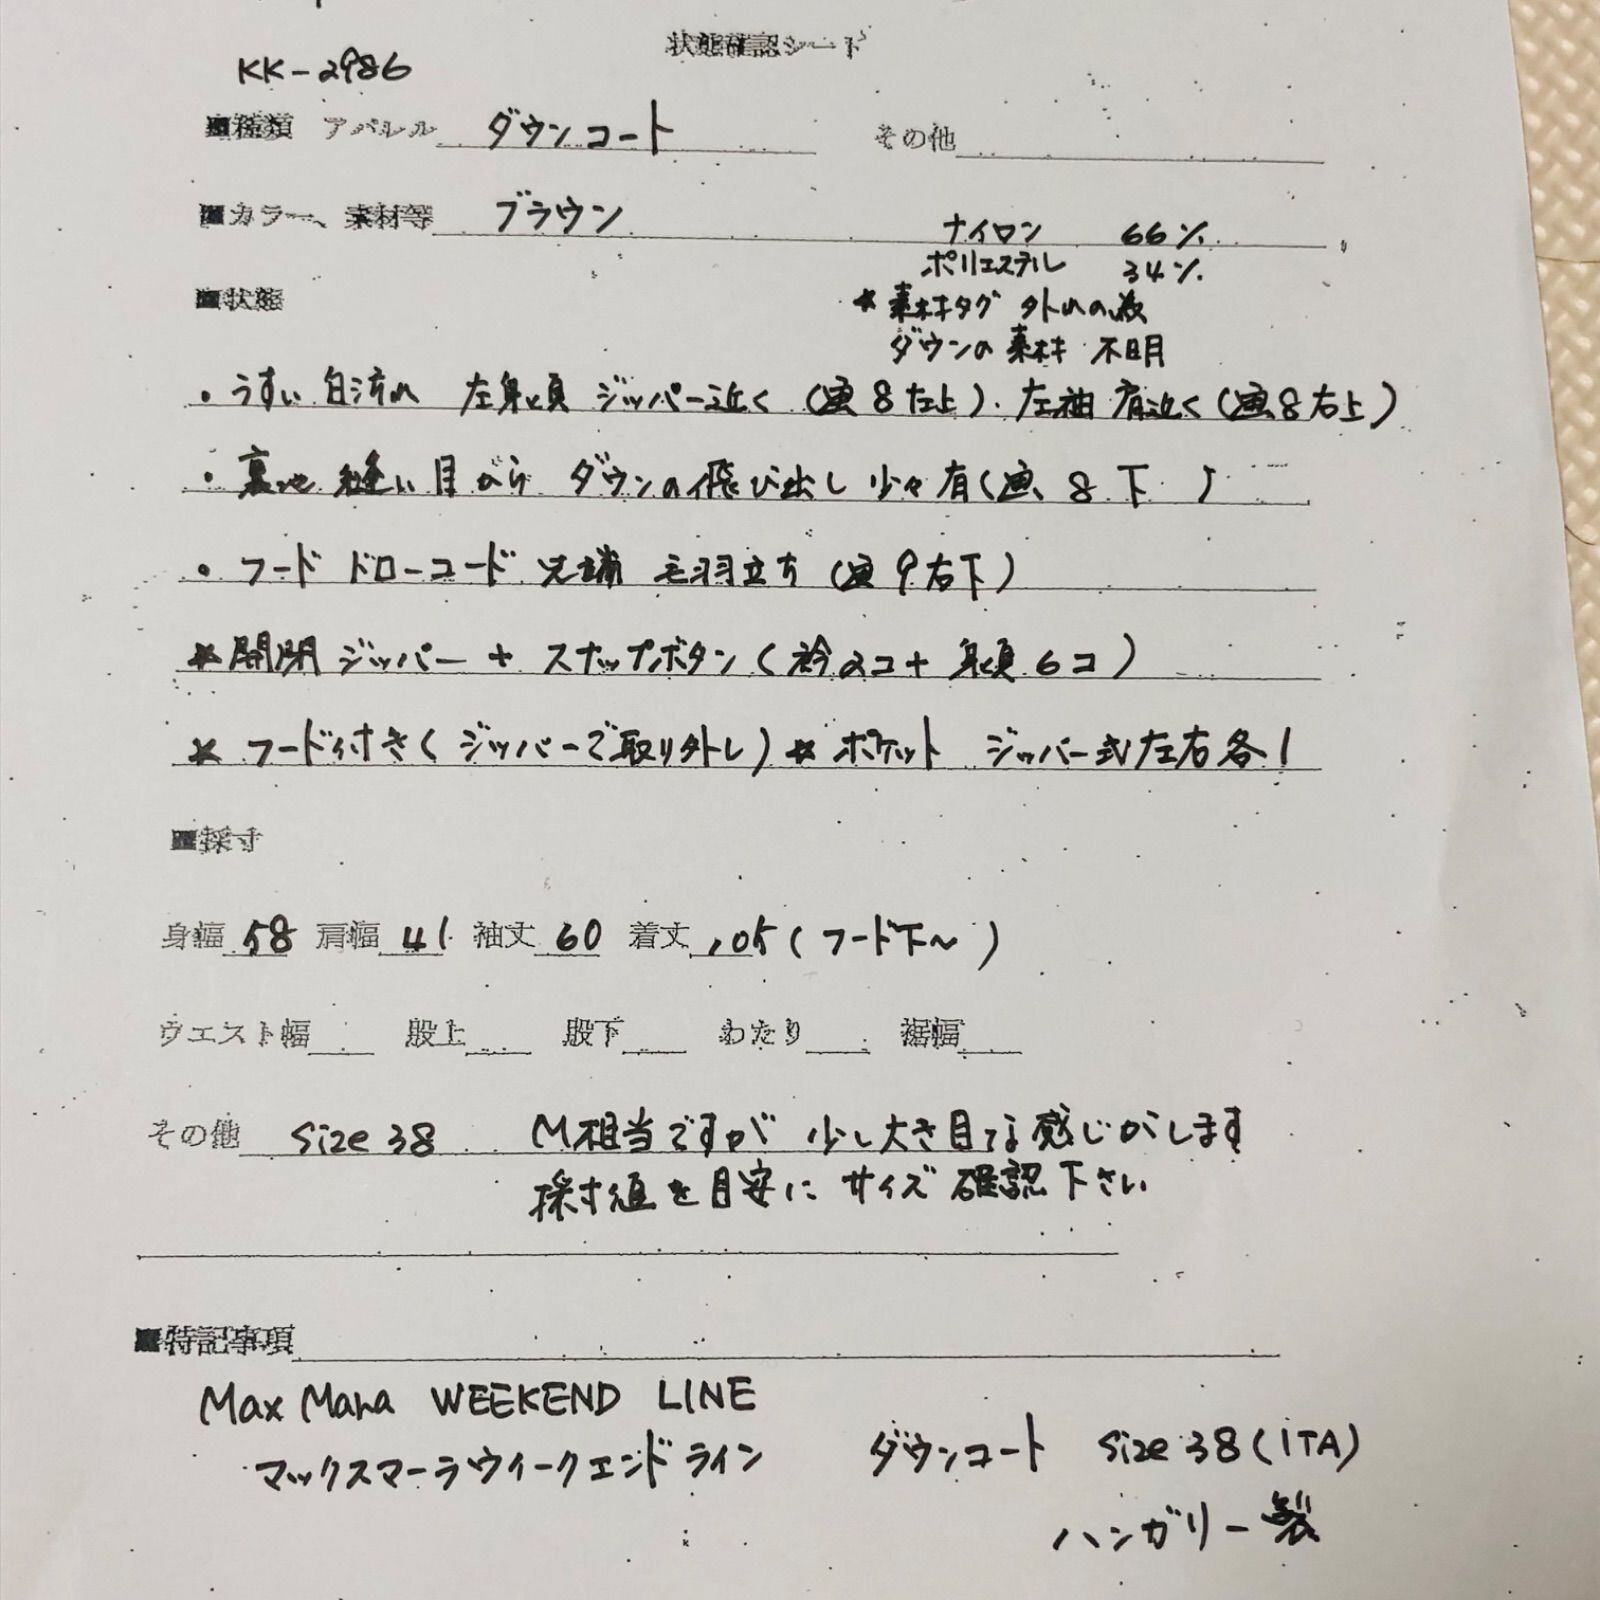 状態確認シート
KK-2986
■種類 アパレル ダウンコート その他
■カラー、素材等 ブラウン ナイロン 66%
ポリエステル 34%
■状態
*素材タグ 外れの為
ダウンの素材 不明
・うすい白汚れ 左身頃 ジッパー近く (画8左上)、左袖 肩近く (画8右上)
・裏地 縫い目から ダウンの飛び出し 少々有 (画8下)
・フード ドローコード 先端 毛羽立ち (画9右下)
*開閉 ジッパー + スナップボタン (衿2コ+身頃6コ)
*フード付き (ジッパーで取り外し) *ポケット ジッパー式左右各1
■採寸
身幅 58 肩幅 41 袖丈 60 着丈 105 (フード下~)
ウエスト幅 股上 股下 わたり 裾幅
その他 size 38 M相当ですが 少し大き目な感じがします
採寸値を目安に サイズ確認下さい
■特記事項
Max Mara WEEKEND LINE
マックスマーラウィークエンドライン ダウンコート size 38 (ITA)
ハンガリー製